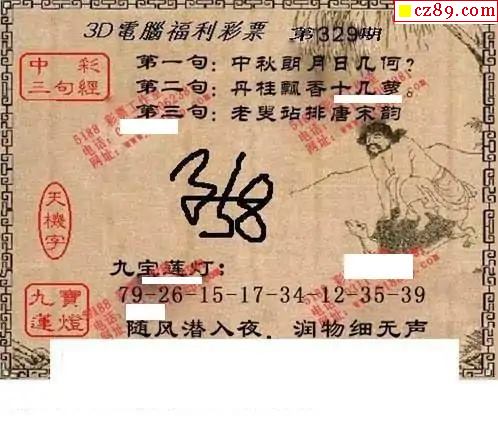 cz89.com
3D電腦福利彩票 第329期
中彩
三句經
第一句：中秋朗月日几何？
第二句：丹桂飘香十几萝。
第三句：老叟站排唐宋韵
天機字
九宝莲灯：
九寶
蓮燈
79-26-15-17-34 12-35-39
随风潜入夜，润物细无声